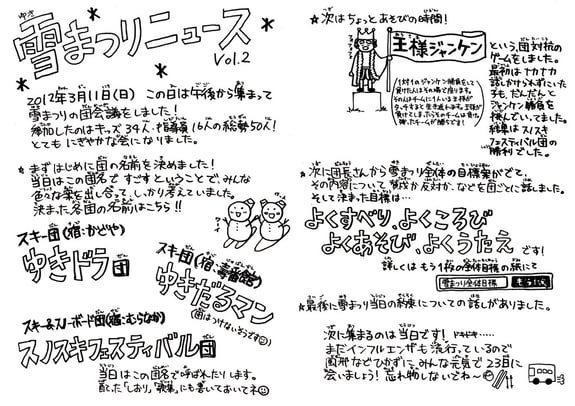 雪まつりニュース
Vol.2
2012年3月11日(日) この日は午後から集まって
雪まつりの団会議をしました!
参加したのはキッズ34人・指導員16人の総勢50人!
とてもにぎやかな会になりました。
★まずはじめに団の名前を決めました!
当日はこの団名ですごすということで、みんな
色々な案を出し合って、しっかり考えていました。
決まった各団の名前はこちら!!
スキー団(宿:かどや)
ゆきドラ団
スキー団(宿:寿番館)
ゆきだるマン
(団はつけないそうです)
スキー&スノーボード団(宿:むらなか)
スノスキフェスティバル団
当日はこの団名で呼ばれたりします。
「しおり」「歌集」にも書いておいてネ
★次はちょっとあそびの時間!
王様ジャンケン
1対1のジャンケン勝負をして
という団対抗の
ゲームをしました。
最初はナカナカ
話しかけられずにいた
子も、だんだんと
ジャンケン勝負を
挑んでいってました。
結果はスノスキ
フェスティバル団の
勝利でした。
★次に団長さんから雪まつり全体の目標発表がでて、
その内容について賛成か反対か、などを団ごとに話しました。
そして決まった目標は…
よくすべり、よくころび
よくあそび、よくうたえ です!
詳しくはもう1枚の全体目標の紙にて
雪まつり全体目標
★最後に雪まつり当日の約束についての話しがありました。
次に集まるのは当日です! ドキドキ……
まだインフルエンザも流行っているので
風邪などひかずに、みんな元気で23日に
会いましょう! 忘れ物しないでね〜